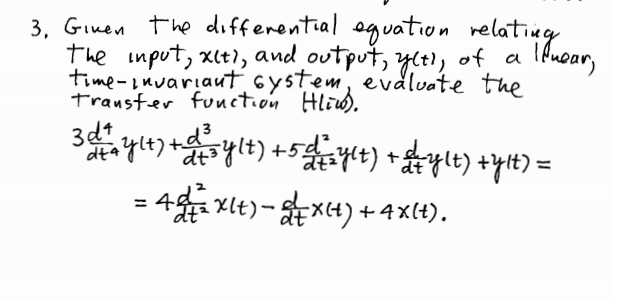 3. Given the differential equation relating
the input, x(t), and output, y(t), of a linear,
time-invariant system, evaluate the
transfer function H(iω).
3 d⁴/dt⁴ y(t) + d³/dt³ y(t) + 5 d²/dt² y(t) + d/dt y(t) + y(t) =
= 4 d²/dt² x(t) - d/dt x(t) + 4x(t).